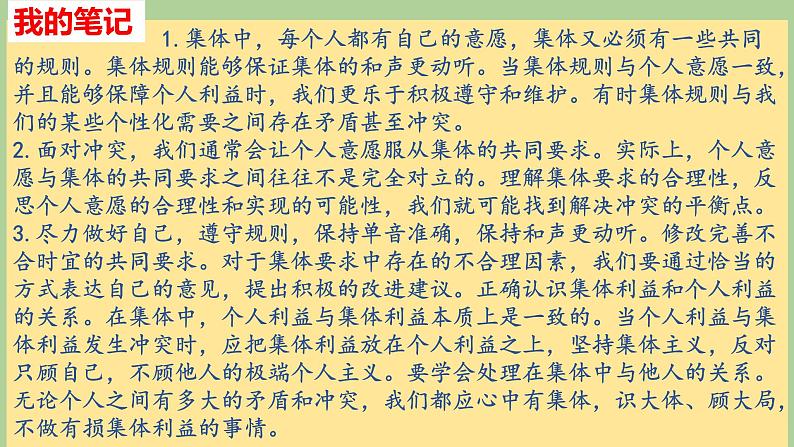 我的笔记
1.集体中，每个人都有自己的意愿，集体又必须有一些共同
的规则。集体规则能够保证集体的和声更动听。当集体规则与个人意愿一致，
并且能够保障个人利益时，我们更乐于积极遵守和维护。有时集体规则与我
们的某些个性化需要之间存在矛盾甚至冲突。
2.面对冲突，我们通常会让个人意愿服从集体的共同要求。实际上，个人意
愿与集体的共同要求之间往往不是完全对立的。理解集体要求的合理性，反
思个人意愿的合理性和实现的可能性，我们就可能找到解决冲突的平衡点。
3.尽力做好自己，遵守规则，保持单音准确，保持和声更动听。修改完善不
合时宜的共同要求。对于集体要求中存在的不合理因素，我们要通过恰当的
方式表达自己的意见，提出积极的改进建议。正确认识集体利益和个人利益
的关系。在集体中，个人利益与集体利益本质上是一致的。当个人利益与集
体利益发生冲突时，应把集体利益放在个人利益之上，坚持集体主义，反对
只顾自己，不顾他人的极端个人主义。要学会处理在集体中与他人的关系。
无论个人之间有多大的矛盾和冲突，我们都应心中有集体，识大体、顾大局，
不做有损集体利益的事情。